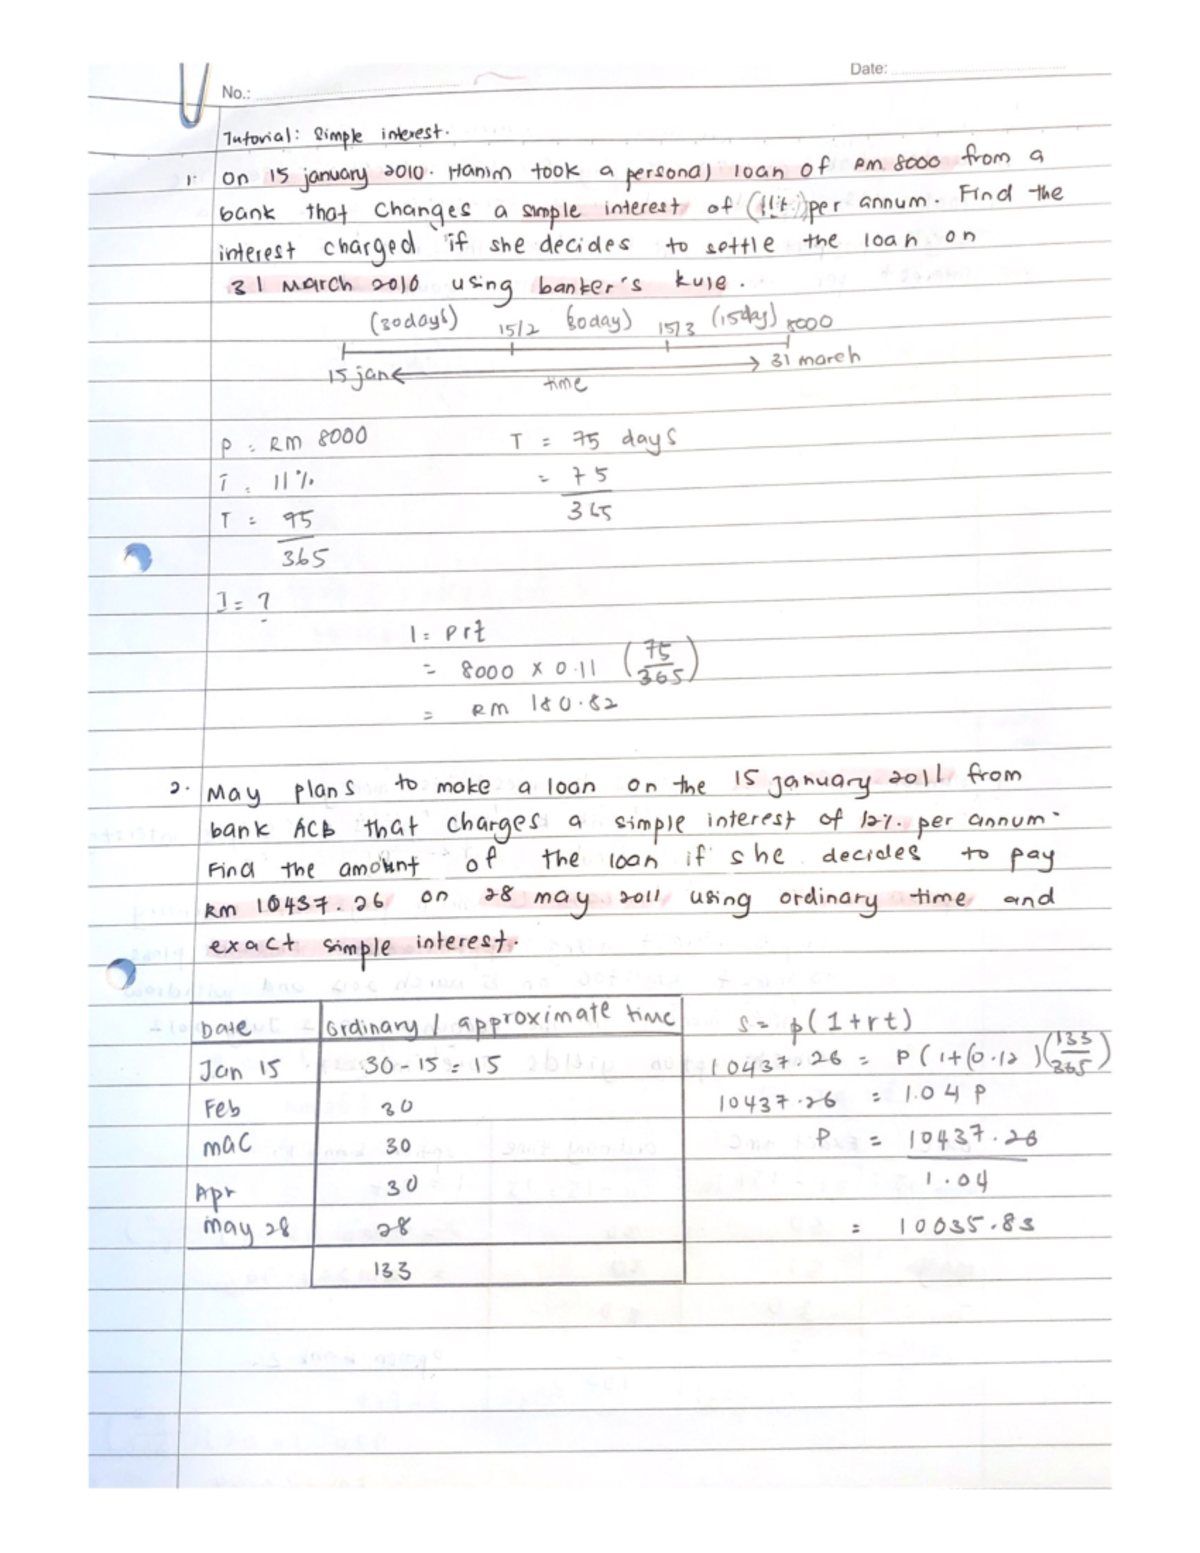 Date:
No.:
Tutorial: Simple interest.
1. On 15 january 2010. Hanim took a personal loan of RM 8000 from a
bank that changes a simple interest of (11%) per annum. Find the
interest charged if she decides to settle the loan on
31 March 2010 using banker's kule.
(30days) 15/2 (30day) 15/3 (15day) 8000
15 jan time 31 march
P = RM 8000 T = 75 days
i = 11% = 75
365
T = 95
365
I = ?
I = prt
= 8000 x 0.11 (75
365)
= RM 180.82
2. May plans to make a loan on the 15 january 2011 from
bank ACB that charges a simple interest of 12% per annum.
Find the amount of the loan if she decides to pay
RM 10437.26 on 28 may 2011 using ordinary time and
exact simple interest.
Date Ordinary / approximate time S = p(1+rt)
Jan 15 30-15=15 10437.26 = P(1+(0.12)(133
365)
Feb 30 10437.26 = 1.04 P
mac 30 P = 10437.26
Apr 30 1.04
may 28 28 = 10035.83
133